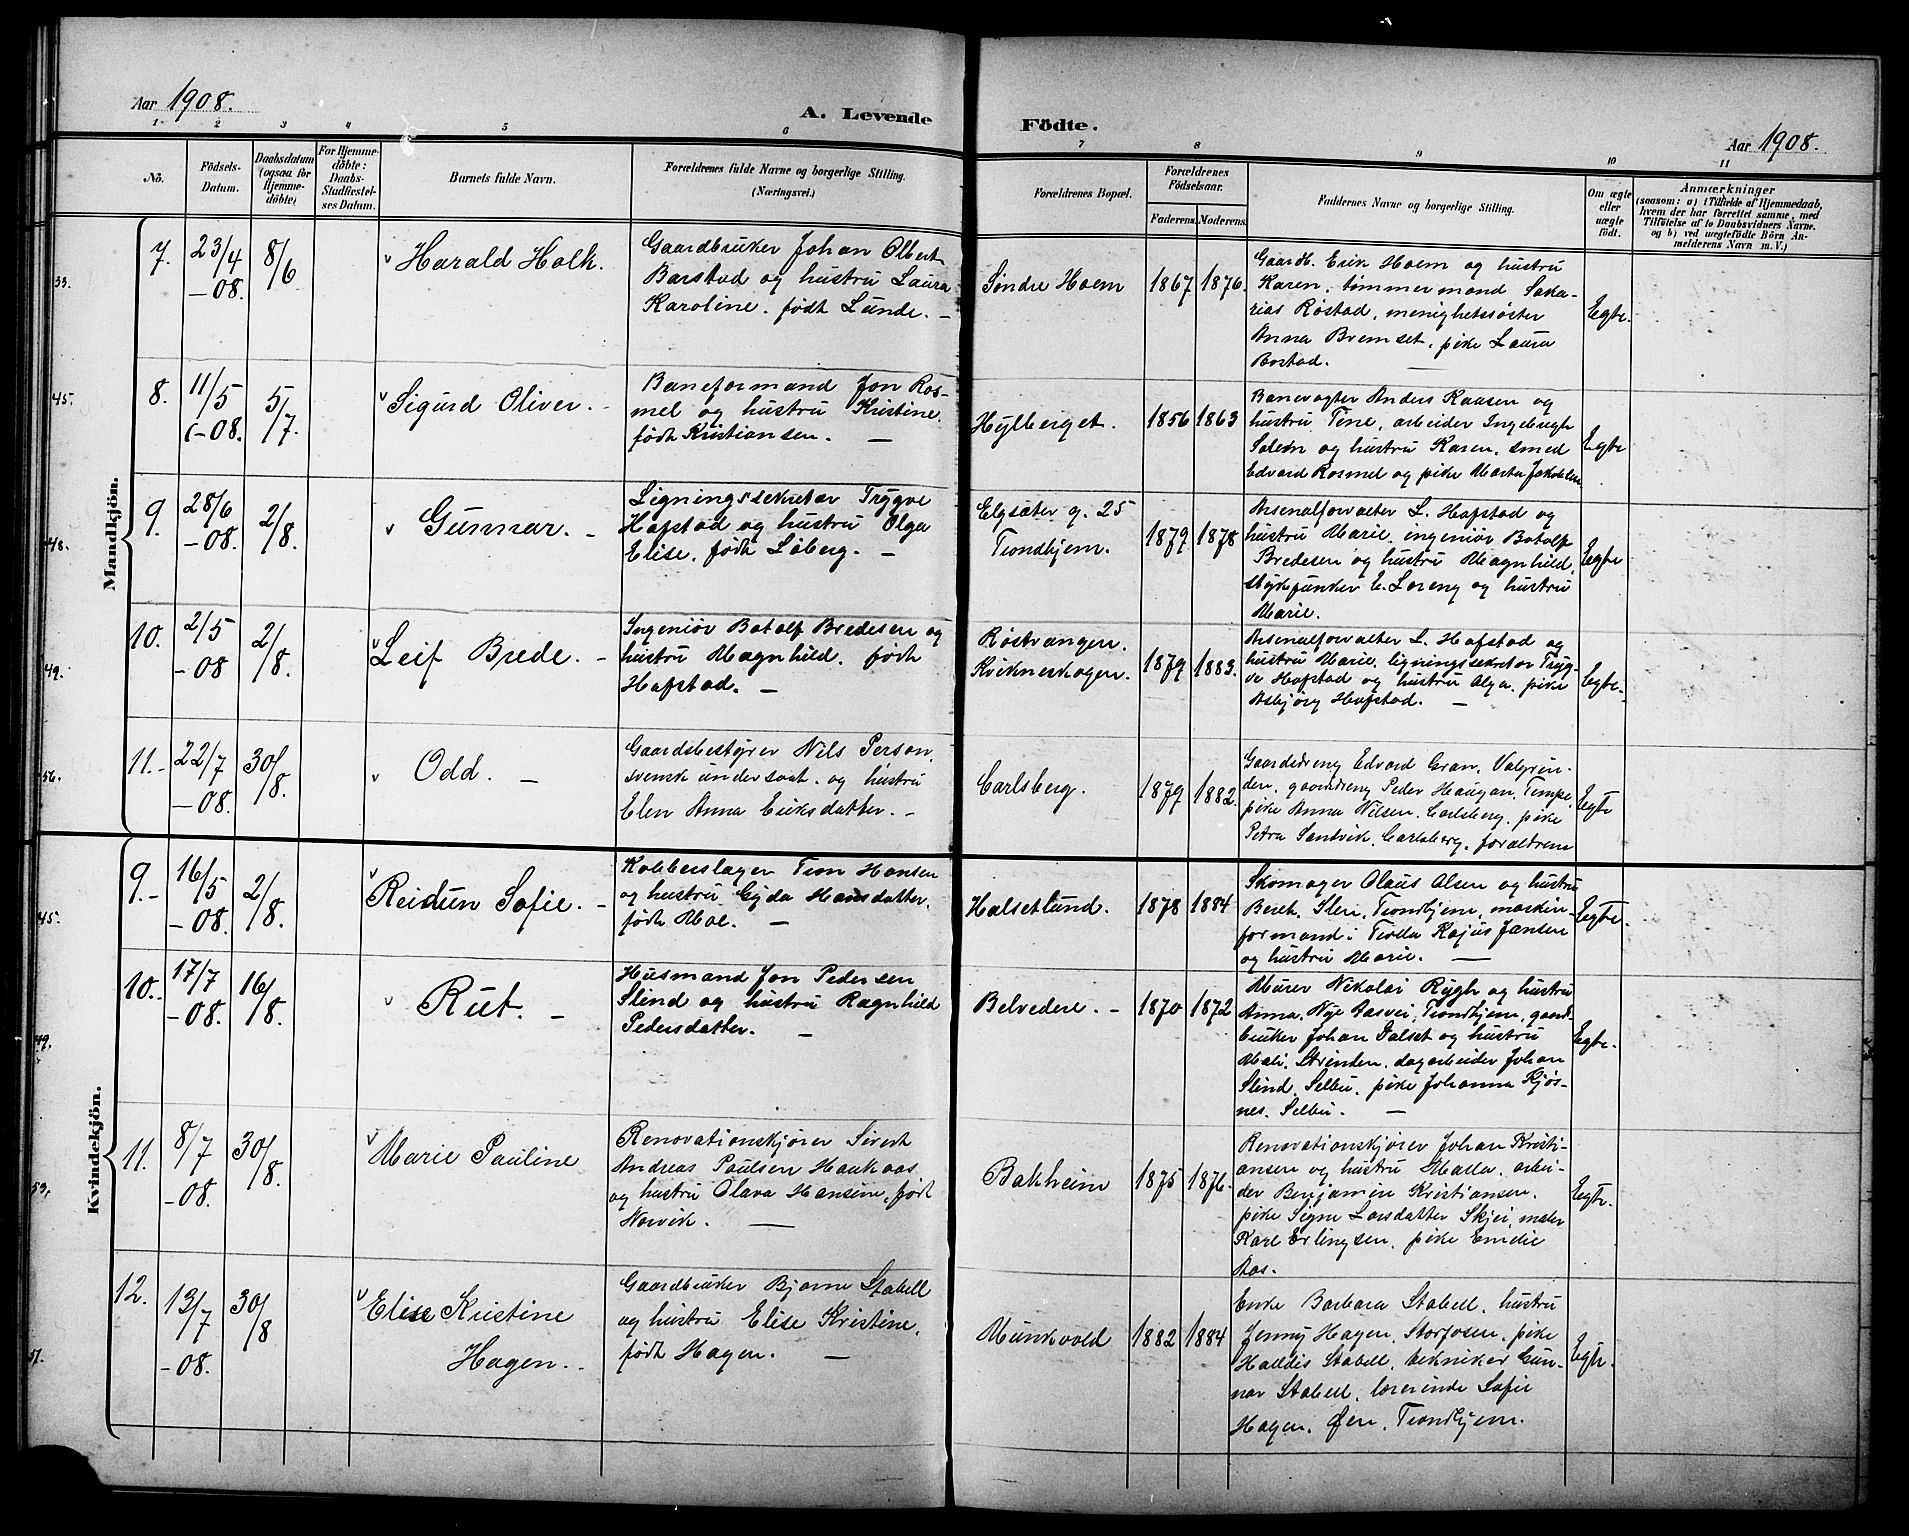 Aar 1908.
A. Levende
Födte.
Aar 1908.
1 2 3 4 5 6 7 8 9 10 11
No.
Födsels-
Datum.
Daabsdatum
(ogsaa for
Hjemme-
döbte)
For Hjemme-
döbte:
Daabs-
Stadfæstel-
ses Datum.
Barnets fulde Navn.
Forældrenes fulde Navne og borgerlige Stilling.
(Næringsvei.)
Forældrenes Bopæl.
Forældrenes
Födselsaar.
Faderens. Moderens.
Faddernes Navne og borgerlige Stilling.
Om ægte
eller
uægte
födt.
Anmærkninger
(saasom: a) i Tilfælde af Hjemmedaab,
hvem der har forrettet samme, med
Tilföielse af to Daabsvidners Navne.
og b) ved uægtefödte Börn An-
melderens Navn m. V.)
Mandkjön.
33.
7.
23/4
-08.
8/6
Harald Holk.
Gaardbruker Johan Olbert
Barstad og hustru Laura
Karoline. født Lunde. -
Søndre Hoem
1867
1876.
Gaardb. Erik Hoem og hustru
Karen, tømmermand Saka-
rias Røstad, menighetssøster
Anna Bremset, pike Laura
Bostad.
Egte.
45.
8.
11/5
-08.
5/7.
Sigurd Oliver. -
Baneformand Jon Ros-
mel og hustru Kristine,
født Kristiansen. -
Hylberget.
1856
1863
Banevogter Anders Kaasen og
hustru Tine, arbeider Ingebrigt
Solem og hustru Karen, smed
Edvard Rosmel og pike Marta Jakobsen
Egte
48.
9.
28/6
-08.
2/8.
Gunnar. -
Ligningssekretær Trygve
Hofstad og hustru Olga
Elise, født Løberg. -
Elgsæter g. 25
Trondhjem.
1879
1878
Arsenalforvalter L. Hofstad og
hustru Marie, ingeniør Botolf
Bredesen og hustru Magnhild,
stykjunker E. Loreng og hustru
Marie.
Egte
49.
10.
2/5
-08.
2/8.
Leif Brede. -
Ingeniør Botolf Bredesen og
hustru Magnhild. født
Hofstad. -
Røstvangen.
Kvikneskogen.
1879
1883.
Arsenalforvalter L. Hofstad og
hustru Marie, ligningssekretær Tryg-
ve Hofstad og hustru Olga, pike
Asbjørg Hofstad. -
Egte.
56.
11.-
22/7
-08.
30/8.
Odd. -
Gaardsbestyrer Nils Person,
svensk undersaat. og hustru
Elen Anna Eriksdatter. -
Carlsberg.
1879
1882.
Gaardsdreng Edvard Gran, Valgrin-
den, gaardsdreng Peder Haugan, Tempe,
pike Anna Nilsen, Carlsberg, pike
Petra Sandvik, Carlsberg, forældrene
Egte
Kvindekjön.
45.
9.-
16/5
-08.
2/8.
Reidun Sofie. -
Kobberslager Tron Hansen
og hustru Gyda Hansdatter,
født Moe. -
Halsetlund.
1878
1884
Skomager Olaus Olsen og hustru
Beret, Ilen, Trondhjem, maskin-
formand i Trolla Kajus Jansen
og hustru Marie. -
Egte.
49.
10.-
17/7
-08.
16/8.
Rut. -
Husmand Jon Pedersen
Slind og hustru Ragnhild
Pedersdatter. -
Belvedere. -
1870
1872
Murer Nikolai Rygh og hustru
Anna, Nye Aasvei, Trondhjem, gaard-
bruker Johan Dalset og hustru
Mali, Strinden, dagarbeider Johan
Slind, Selbu, pike Johanna Kjøs-
nes, Selbu. -
Egte.
53.
11.
8/7
-08.
30/8.
Marie Pauline
Renovationskjører Sivert
Andreas Paulsen Haukaas
og hustru Olava Hansine, født
Norvik. -
Bakheim
1875
1876.
Renovationskjører Johan Kristi-
ansen og hustru Malla, arbei-
der Benjamin Kristiansen,
pike Signe Larsdatter Skjei, maler
Karl Erlingsen, pike Emelie
Aas.
Egte.
57.
12.
13/7
-08.
30/8
Elise Kristine
Hagen. -
Gaardbruker Bjarne Stabell
og hustru Elise Kristine,
født Hagen. -
Munkvold
1882
1884
Enke Barbara Stabell, hustru
Jenny Hagen, Storfosen, pike
Halldis Stabell, tekniker Gun-
nar Stabell, lærerinde Sofie
Hagen, Øren, Trondhjem.
Egte.